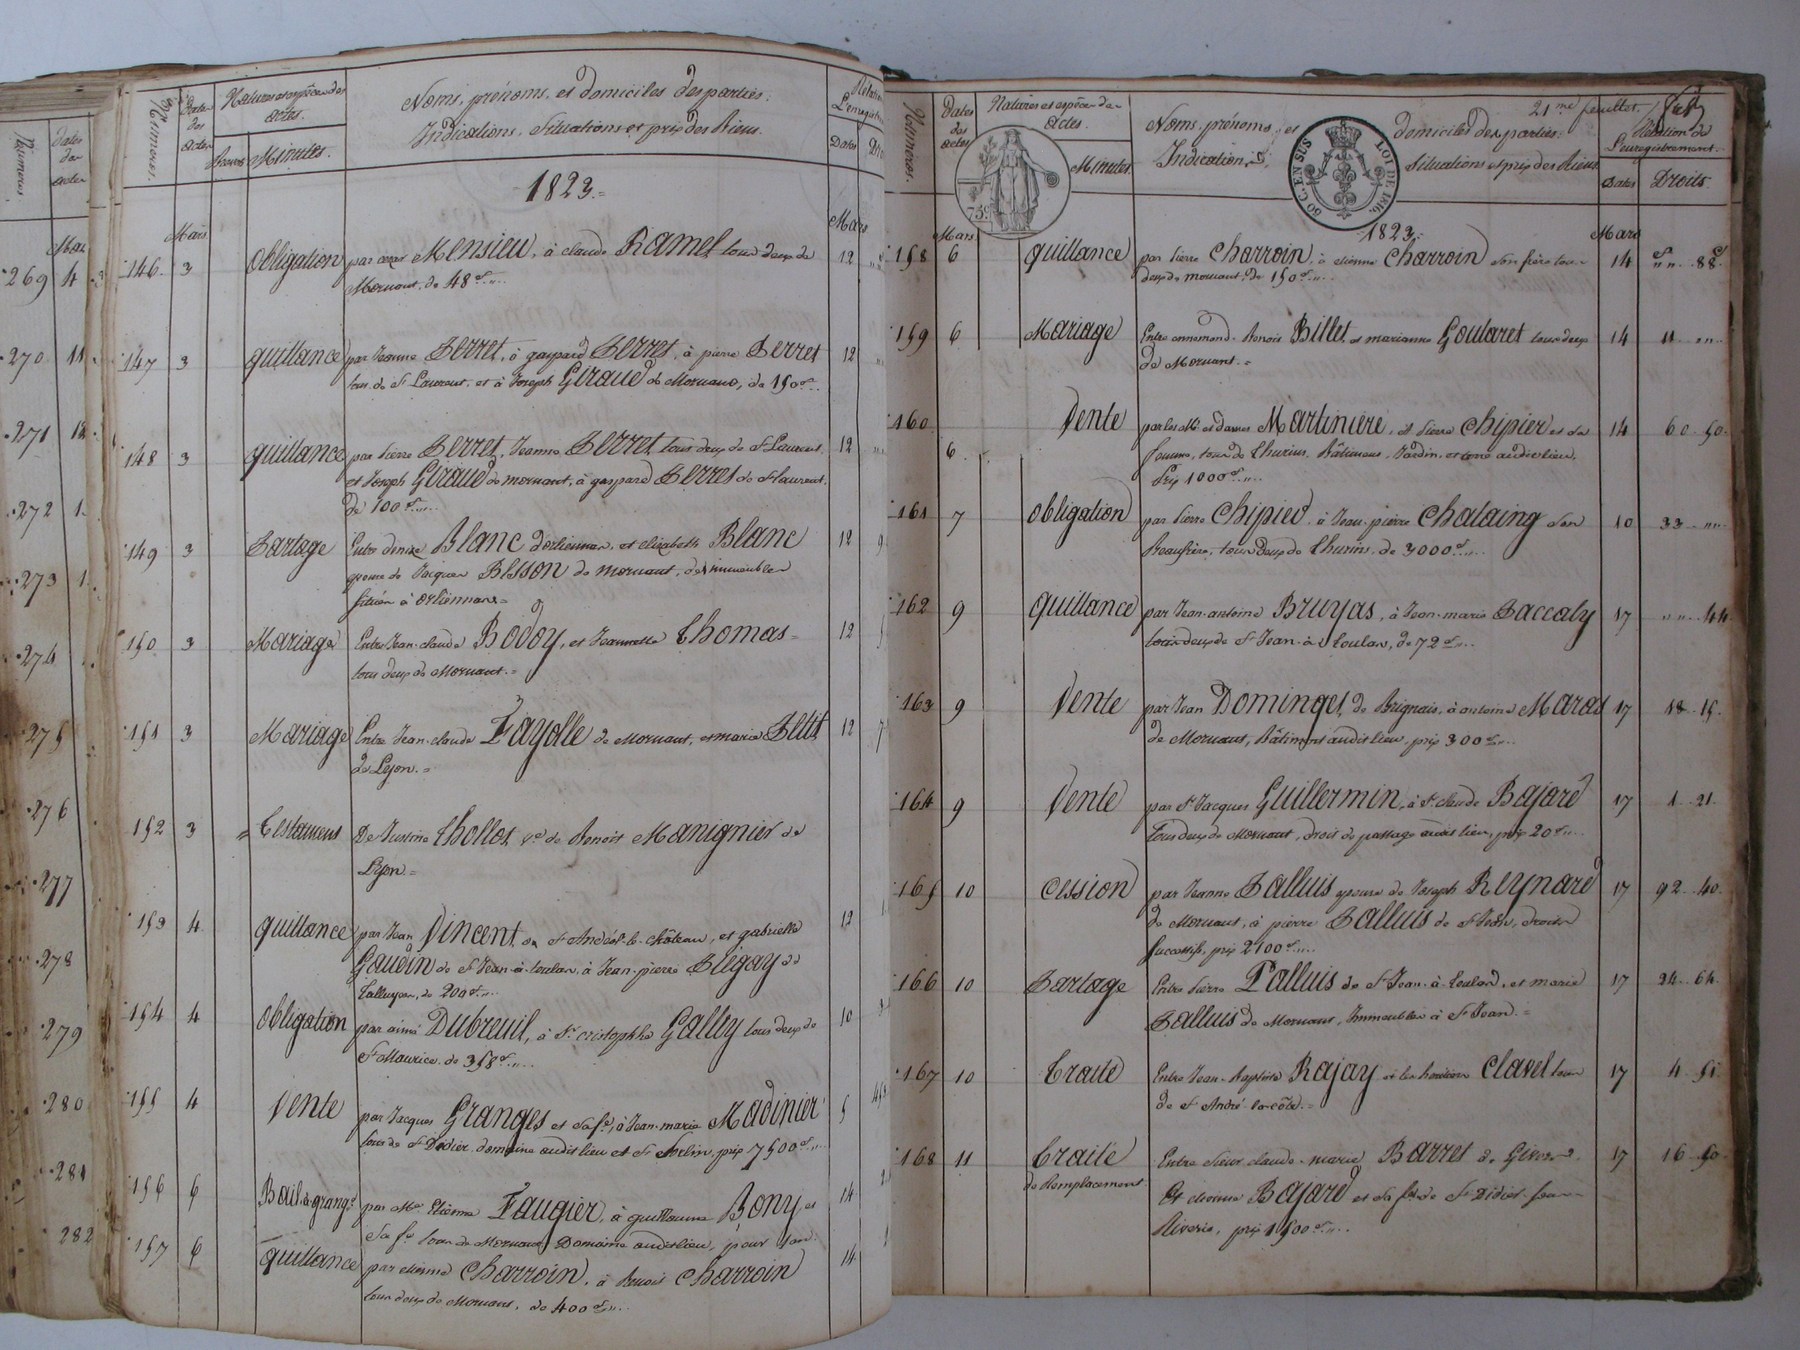 Numéros
Dates des actes
Mars
269 4
270 11
271 12
272 1
273 1
274
275
276
277
278
279
280
281
282
Numéros.
Dates des actes
Natures et espèces des actes.
Brevets Minutes.
Noms, prénoms, et domiciles des parties.
Indications, Situations et prix des biens.
Dates
1823.=
Mars Mars
146. 3 Obligation par Mensieu, à claude Ramel tous deux de 12
Mornant, de 48f..
147 3 quittance par Jeanne Perret, à gaspard Perret, à pierre Perret 12
tous de St Laurent, et à Joseph Giraud de Mornant, de 150f..
148 3 quittance par pierre Perret, Jeanne Perret, tous deux de St Laurent, 12
et Joseph Giraud de mornant, à gaspard Perret de St laurent,
de 100f..
149 3 Partage Entre denise Blanc d'orliennas, et elizabeth Blanc 12 9
épouse de Jacques Bisson de mornant, des immeubles
situés à orliennas=
150 3 Mariage Entre Jean-claude Bodoy, et Jeannette Thomas= 12
tous deux de Mornant.=
151 3 Mariage Entre Jean-claude Fayolle de Mornant, et marie Petit 12 7
de Lyon.=
152 3 = Testament De Justine Thollot, ve de Benoit Manignier de
Lyon=
153 4 quittance par Jean Vincent, de St Andéol-le-château, et gabrielle 12
Gaudin de St Jean-à-toulas, à Jean-pierre Piegay de
talluyers, de 200f..
154 4 Obligation par aimé Dubreuil, à Sr cristophhe Galley tous deux de 10
St Maurice, de 358f..
155 4 Vente par Jacques Granges et sa fe, à Jean-marie Madinier 5
tous de St Didier, domaine audit lieu et St Sorlin, prix 7500f..
156 6 Bail à grange par Mr Etienne Faugier, à guillaume Bony et 14
sa fe tous de Mornant, Domaine audit lieu, pour
157 6 quittance par etienne Charroin, à Benoit Charroin 14
tous deux de Mornant, de 400f..
Numéros.
Dates des actes
Natures et espèces des actes.
Minutes.
21me feuillet.
Noms, prénoms, et domiciles des parties.
Indications, Situations et prix des biens
Relation de l'enregistrement.
Dates Droits.
75c
50 C. EN SUS LOI DE 1816.
1823.
Mars Mars
158 6 quittance par pierre Charroin, à etienne Charroin son frère tous 14 " " 88
deux de mornant, de 150f..
159 6 Mariage Entre ennemond-Benoit Billet, et marianne Goutaret tous deux 14 11 " "
de Mornant.=
160 6 Vente par les Mr et dames Martiniere, à pierre Chipier et sa 14 60 50
femme, tous de thurins, Bâtiment, Jardin, et terre audit lieu,
Prix 1000f..
161 7 Obligation par pierre Chipier à Jean-pierre Chalaing son 10 33 " "
Beaufrère, tous deux de thurins, de 3000f..
162 9 quittance par Jean-antoine Bruyas, à Jean-marie Baccaly 17 " " 44
tous deux de St Jean-à-toulas, de 72f..
163 9 Vente par Jean Dominget, de Brignais, à antoine Marad 17 18 15
de Mornant, Bâtiment audit lieu, prix 300f..
164 9 Vente par Sr Jacques Guillermin, à Sr claude Bajard 17 1 21
tous deux de Mornant, droit de passage audit lieu, prix 20f..
165 10 Cession par Jeanne Palluis épouse de Joseph Reynard 17 92 40
de Mornant, à pierre Palluis de St Jean, droits
successifs, prix 2100f..
166 10 Partage Entre pierre Palluis de St Jean-à-toulas, et marie 17 24 64
Palluis de Mornant, Immeubles à St Jean.=
167 10 Traité Entre Jean-Baptiste Rajay et les héritiers Clavel tous 17 4 51
de St André-la-côte.=
168 11 Traité Entre sieur claude-marie Barret de Givors 17 16 50
de Remplacement Et etienne Bajard et sa fe de St Didier-sous-
Riverie, prix 1500f..